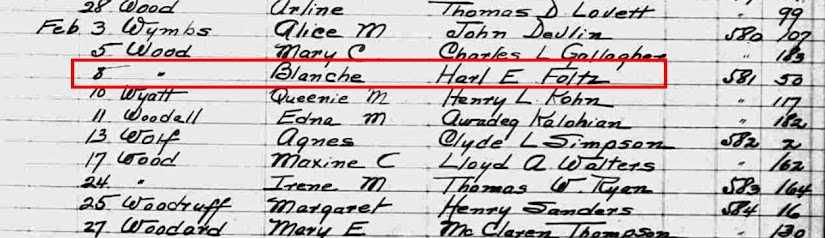 28 Wood Arline Thomas D. Lovett " 99
Feb 3 Wymbs Alice M John Devlin 580 107
5 Wood Mary C Charles L Gallagher " 183
8 " Blanche Harl E Foltz 581 50
10 Wyatt Queenie M Henry L Kohn " 117
11 Woodall Edna M Auradeg Kalohian " 182
13 Wolf Agnes Clyde L Simpson 582 2
17 Wood Maxine C Lloyd A Walters " 162
24 " Irene M Thomas W. Ryan 583 164
25 Woodruff Margaret Henry Sanders 584 16
27 Woodard Mary E McClaren Thompson " 130